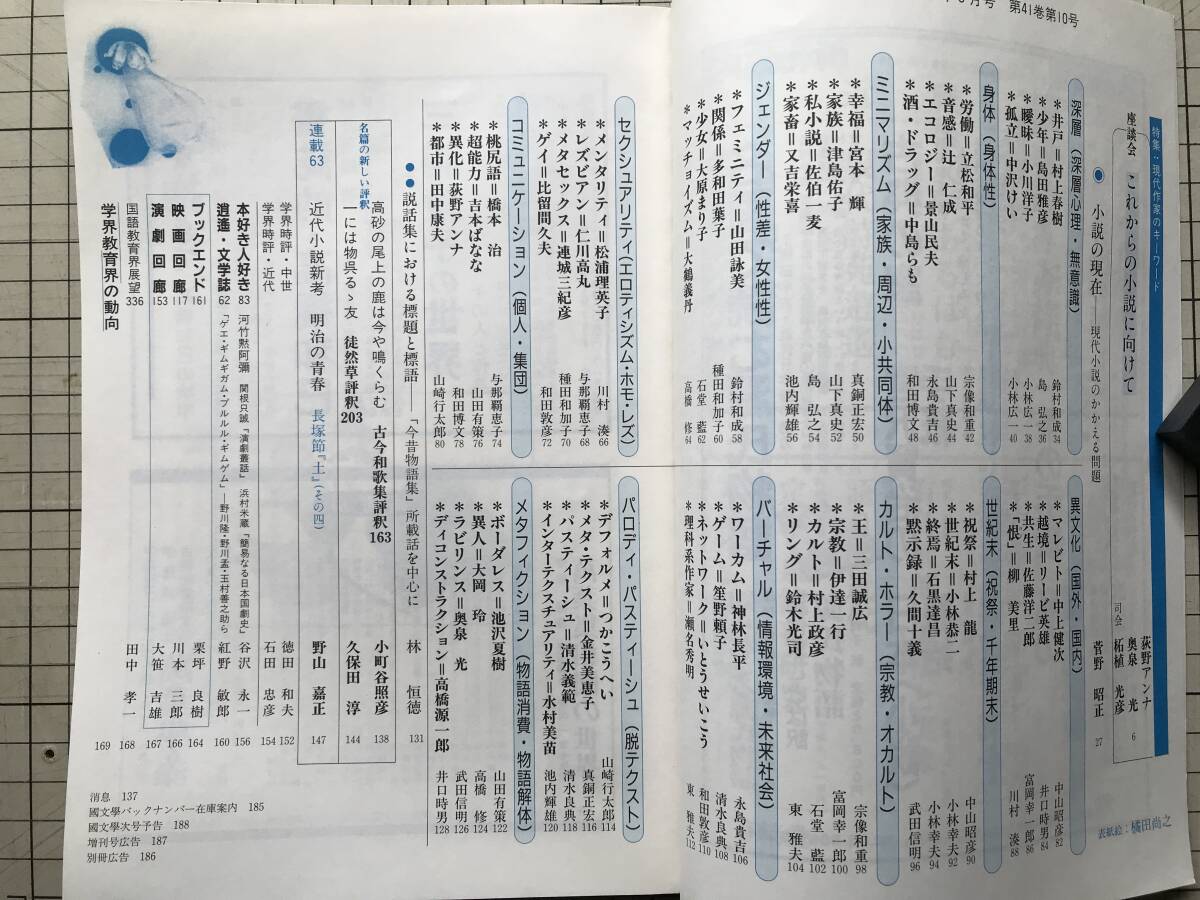 月号 第41巻第10号
特集・現代作家のキーワード
座談会 これからの小説に向けて
荻野アンナ
奥泉 光
司会 柘植光彦 6
● 小説の現在――現代小説のかかえる問題
菅野 昭正 27
深層（深層心理・無意識）
＊井戸＝村上春樹 鈴村和成 34
＊少年＝島田雅彦 島 弘之 36
＊曖昧＝小川洋子 小林広一 38
＊孤立＝中沢けい 小林広一 40
身体（身体性）
＊労働＝立松和平 宗像和重 42
＊音感＝辻 仁成 山下真史 44
＊エコロジー＝景山民夫 永島貴吉 46
＊酒・ドラッグ＝中島らも 和田博文 48
ミニマリズム（家族・周辺・小共同体）
＊幸福＝宮本 輝 真銅正宏 50
＊家族＝津島佑子 山下真史 52
＊私小説＝佐伯一麦 島 弘之 54
＊家畜＝又吉栄喜 池内輝雄 56
ジェンダー（性差・女性性）
＊フェミニティ＝山田詠美 鈴村和成 58
＊関係＝多和田葉子 種田和加子 60
＊少女＝大原まり子 石堂 藍 62
＊マッチョイズム＝大鶴義丹 高橋 修 64
セクシュアリティ（エロティシズム・ホモ・レズ）
＊メンタリティ＝松浦理英子 川村 湊 66
＊レズビアン＝仁川高丸 与那覇恵子 68
＊メタセックス＝連城三紀彦 種田和加子 70
＊ゲイ＝比留間久夫 和田敦彦 72
コミュニケーション（個人・集団）
＊桃尻語＝橋本 治 与那覇恵子 74
＊超能力＝吉本ばなな 山田有策 76
＊異化＝荻野アンナ 和田博文 78
＊都市＝田中康夫 山崎行太郎 80
異文化（国外・国内）
＊マレビト＝中上健次 中山昭彦 82
＊越境＝リービ英雄 井口時男 84
＊共生＝佐藤洋二郎 富岡幸一郎 86
＊「恨」＝柳 美里 川村 湊 88
世紀末（祝祭・千年期末）
＊祝祭＝村上 龍 中山昭彦 90
＊世紀末＝小林恭二 小林幸夫 92
＊終焉＝石黒達昌 小林幸夫 94
＊黙示録＝久間十義 武田信明 96
カルト・ホラー（宗教・オカルト）
＊王＝三田誠広 宗像和重 98
＊宗教＝伊達一行 富岡幸一郎 100
＊カルト＝村上政彦 石堂 藍 102
＊リング＝鈴木光司 東 雅夫 104
バーチャル（情報環境・未来社会）
＊ワーカム＝神林長平 永島貴吉 106
＊ゲーム＝笙野頼子 清水良典 108
＊ネットワーク＝いとうせいこう 和田敦彦 110
＊理科系作家＝瀬名秀明 東 雅夫 112
パロディ・パスティーシュ（脱テクスト）
＊デフォルメ＝つかこうへい 山崎行太郎 114
＊メタ・テクスト＝金井美恵子 真銅正宏 116
＊パスティーシュ＝清水義範 清水良典 118
＊インターテクスチュアリティ＝水村美苗 池内輝雄 120
メタフィクション（物語消費・物語解体）
＊ボーダレス＝池沢夏樹 山田有策 122
＊異人＝大岡 玲 高橋 修 124
＊ラビリンス＝奥泉 光 武田信明 126
＊ディコンストラクション＝高橋源一郎 井口時男 128
●●説話集における標題と標語――「今昔物語集」所載話を中心に 林 恒徳 131
名篇の新しい評釈
高砂の尾上の鹿は今や鳴くらむ 古今和歌集評釈163 小町谷照彦 138
一には物呉るゝ友 徒然草評釈203 久保田 淳 144
連載63 近代小説新考 明治の青春 長塚節『土』（その四） 野山 嘉正 147
学界時評・中世 徳田 和夫 152
学界時評・近代 石田 忠彦 154
本好き人好き83 河竹黙阿彌 関根只誠「演劇叢話」 浜村米蔵「簡易なる日本国劇史」 谷沢 永一 156
逍遙・文学誌62 「ゲエ・ギムギガム・プルルル・ギムゲム」―野川隆・野川孟・玉村善之助ら 紅野 敏郎 160
ブックエンド161 栗坪 良樹 164
映画回廊117 川本 三郎 166
演劇回廊153 大笹 吉雄 167
国語教育界展望336 田中 孝一 168
学界教育界の動向 169
消息 137
國文學バックナンバー在庫案内 185
國文學次号予告 188
増刊号広告 187
別冊広告 186
表紙絵：橘田尚之